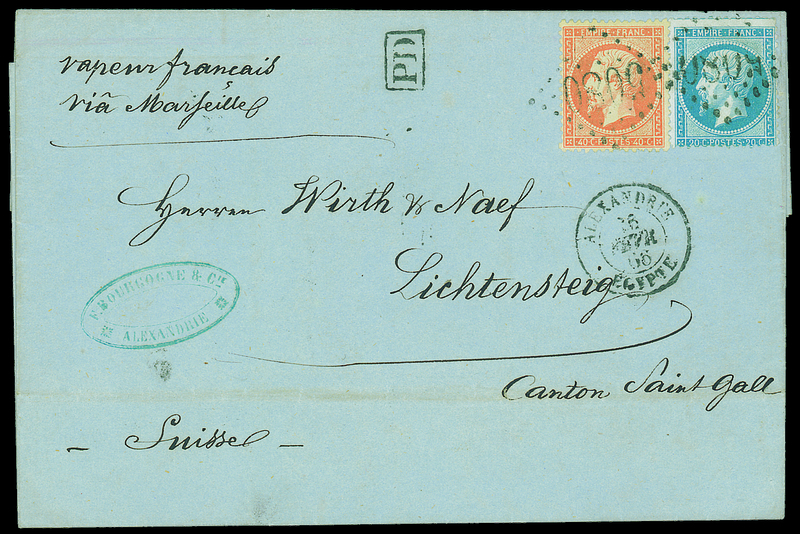 vapeur francais
viâ Marseille
PD
EMPIRE FRANC
40 C POSTES 40 C
EMPIRE FRANC
20 C POSTES 20 C
Herren Wirth & Naef
Lichtensteig
Canton Saint Gall
— Suisse —
ALEXANDRIE
66
EGYPTE
BOURGOGNE & Cie
ALEXANDRIE